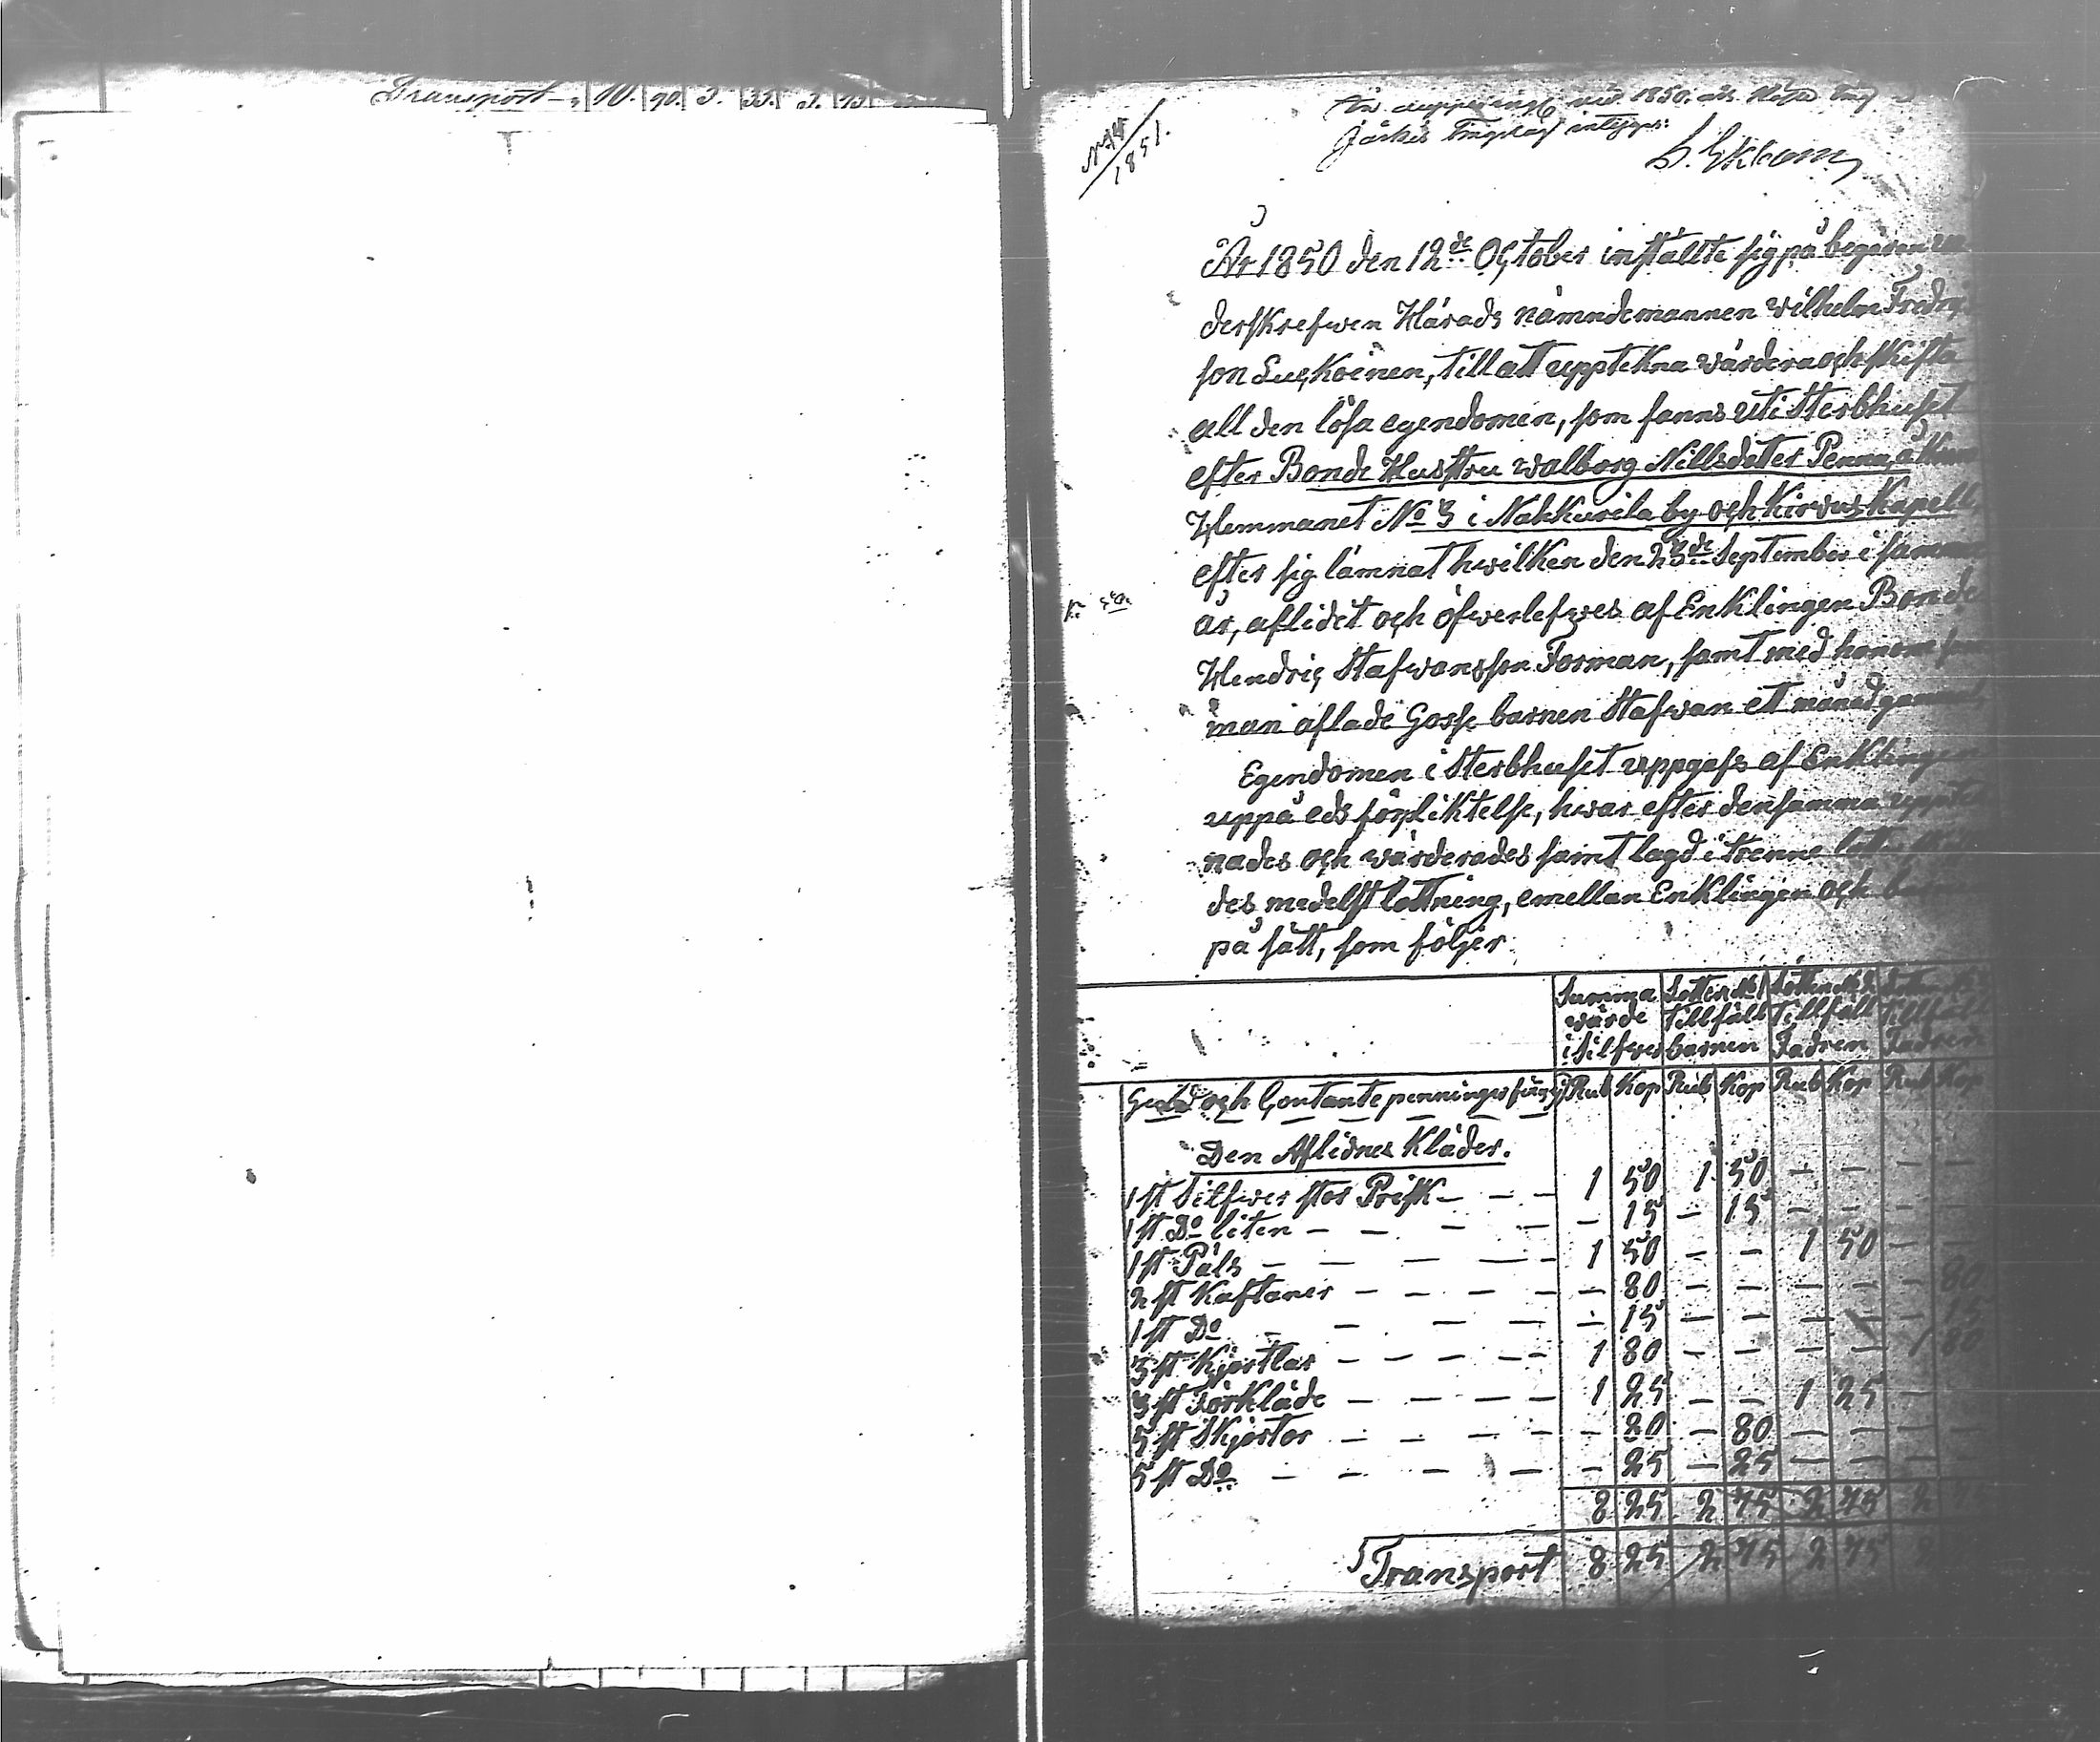 Transport 10. 90. 3. 35. 3.
N:o 44
1851.
1850
Jäskis Tingslag
År 1850 den 12de October inställte sig på begäran un
derskrefwen Härads nämndemannen Wilhelm Fredrik
son Luckoinen, till att upptekna wärdera och skifta
all den lösa egendomen, som fanns uti Sterbhuset
efter Bonde Hustru Walborg Nillsdotter Penna, å
Hemmanet No 3 i Nakkurila by och Kirvus Kapell
efter sig lämnat hwilken den 23de September i samma
år, aflidit och öfwerlefwes af Enklingen Bonde
Hendric Stafwansson Torman, samt med honom sam
man aflade Gosse barnen Stafwan ett månad gammal,
Egendomen i Sterbhuset uppgafs af Enklingen
uppå eds förpliktelse, hwar efter densamma uppteck
nades och wärderades samt lagd i trenne lotter
des medelst lottning, emellan Enklingen och barnen
på sätt, som följer
Summa wärde i Silfwer | Lotten No 1 Tillfäll barnen | Lotten No 2 Tillfäll Fadren | Lotten Tillfäll Fadren
och Contante penningar Rub Kop Rub Kop Rub Kop Rub Kop
Den Aflidnes Kläder.
1 st Silfwer stor Prisk — — — 1 50 1 50 — — — —
1 st Do liten — — — — — 15 — 15 — — — —
1 st Päls — — — — 1 50 — — 1 50 — —
2 st Kaftaner — — — — — 80 — — — — — 80
1 st Do — — — — — 15 — — — — — 15
3 st Kjortlar — — — — 1 80 — — — — 1 80
3 st Förkläde — — — — 1 25 — — 1 25 —
5 st Skjortor — — — — — 80 — 80 — — — —
5 st Do — — — — — 25 — 25 — — — —
8 25 2 75 2 75 2
Transport 8 25 2 75 2 75